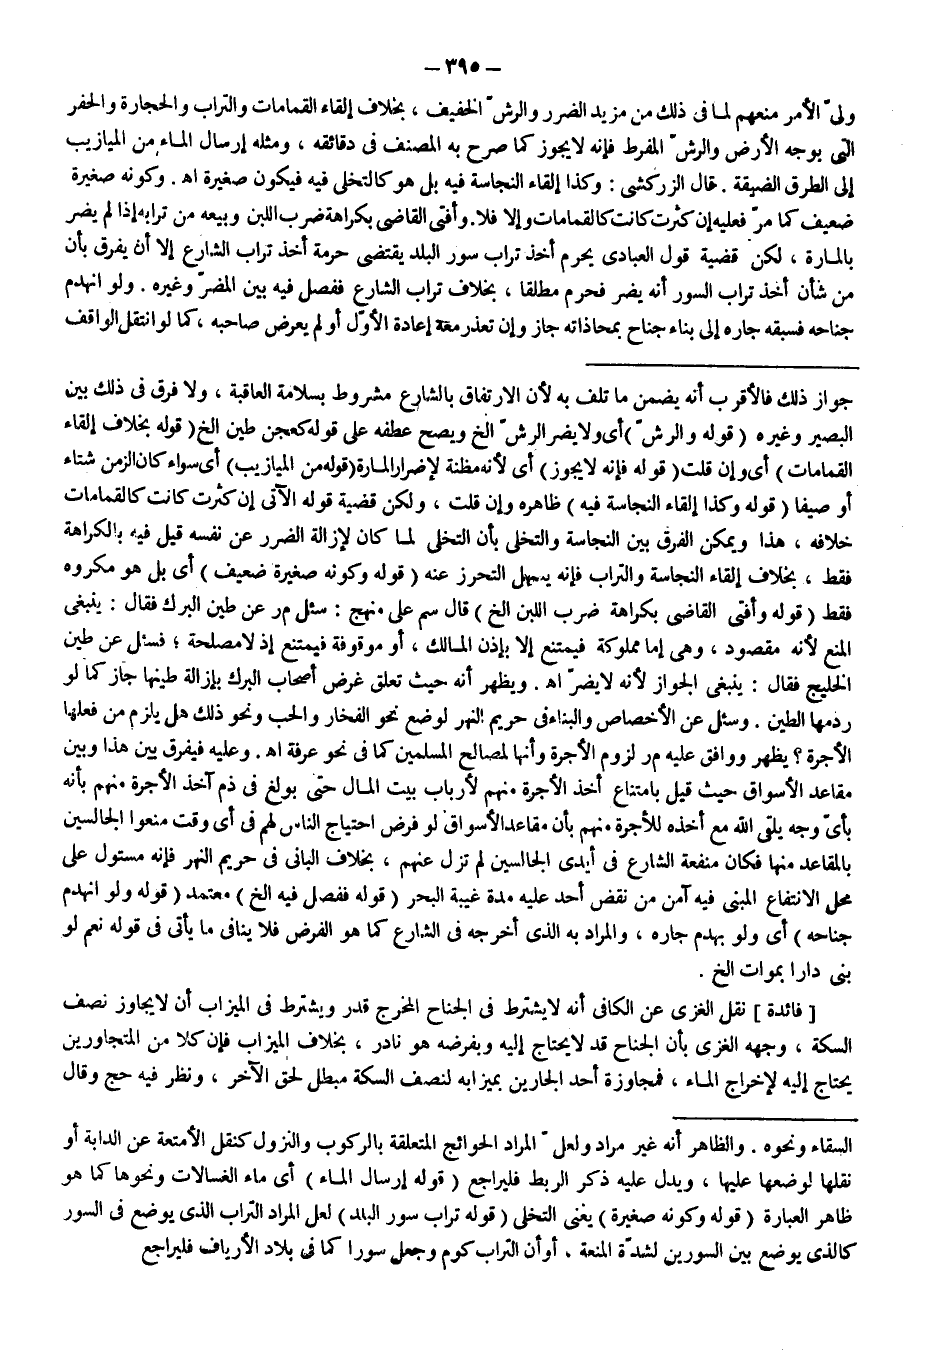 — ٣٩٥ —
ولىّ الأمر منعهم لما فى ذلك من مزيد الضرر والرشّ الخفيف ، بخلاف إلقاء القمامات والتراب والحجارة والحفر
التى بوجه الأرض والرشّ المفرط فإنه لايجوز كما صرح به المصنف فى دقائقه ، ومثله إرسال الماء من الميازيب
إلى الطرق الضيقة . قال الزركشى : وكذا إلقاء النجاسة فيه بل هو كالتخلى فيه فيكون صغيرة اه . وكونه صغيرة
ضعيف كما مرّ فعليه إن كثرت كانت كالقمامات وإلا فلا . وأفتى القاضى بكراهة ضرب اللبن وبيعه من ترابه إذا لم يضر
بالمارة ، لكن قضية قول العبادى يحرم أخذ تراب سور البلد يقتضى حرمة أخذ تراب الشارع إلا أن يفرق بأن
من شأن أخذ تراب السور أنه يضر فحرم مطلقا ، بخلاف تراب الشارع ففصل فيه بين المضرّ وغيره . ولو انهدم
جناحه فسبقه جاره إلى بناء جناح بمحاذاته جاز وإن تعذر معه إعادة الأوّل أو لم يعرض صاحبه ، كما لو انتقل الواقف
جواز ذلك فالأقرب أنه يضمن ما تلف به لأن الارتفاق بالشارع مشروط بسلامة العاقبة ، ولا فرق فى ذلك بين
البصير وغيره ( قوله والرشّ ) أى ولا يضر الرشّ الخ ويصح عطفه على قوله كعجن طين الخ ( قوله بخلاف إلقاء
القمامات ) أى وإن قلت ( قوله فإنه لايجوز ) أى لأنه مظنة لإضرار المارة ( قوله من الميازيب ) أى سواء كان الزمن شتاء
أو صيفا ( قوله وكذا إلقاء النجاسة فيه ) ظاهره وإن قلت ، ولكن قضية قوله الآتى إن كثرت كانت كالقمامات
خلافه ، هذا ويمكن الفرق بين النجاسة والتخلى بأن التخلى لما كان لإزالة الضرر عن نفسه قيل فيه بالكراهة
فقط ، بخلاف إلقاء النجاسة والتراب فإنه يسهل التحرز عنه ( قوله وكونه صغيرة ضعيف ) أى بل هو مكروه
فقط ( قوله وأفتى القاضى بكراهة ضرب اللبن الخ ) قال سم على منهج : سئل مر عن طين البرك فقال : ينبغى
المنع لأنه مقصود ، وهى إما مملوكة فيمتنع إلا بإذن المالك ، أو موقوفة فيمتنع إذ لامصلحة ؛ فسئل عن طين
الخليج فقال : ينبغى الجواز لأنه لايضرّ اه . ويظهر أنه حيث تعلق غرض أصحاب البرك بإزالة طينها جاز كما لو
ردمها الطين . وسئل عن الأخصاص والبناء فى حريم النهر لوضع نحو الفخار والحب ونحو ذلك هل يلزم من فعلها
الأجرة ؟ يظهر ووافق عليه مر لزوم الأجرة وأنها لمصالح المسلمين كما فى نحو عرفة اه . وعليه فيفرق بين هذا وبين
مقاعد الأسواق حيث قيل بامتناع أخذ الأجرة منهم لأرباب بيت المال حتى بولغ فى ذم آخذ الأجرة منهم بأنه
بأىّ وجه يلقى الله مع أخذه للأجرة منهم بأن مقاعد الأسواق لو فرض احتياج الناس لهم فى أى وقت منعوا الجالسين
بالمقاعد منها فكان منفعة الشارع فى أيدى الجالسين لم تزل عنهم ، بخلاف البانى فى حريم النهر فإنه مستول على
محل الانتفاع المبنى فيه آمن من نقض أحد عليه مدة غيبة البحر ( قوله ففصل فيه الخ ) معتمد ( قوله ولو انهدم
جناحه ) أى ولو بهدم جاره ، والمراد به الذى أخرجه فى الشارع كما هو الفرض فلا ينافى ما يأتى فى قوله نعم لو
بنى دارا بموات الخ .
[ فائدة ] نقل الغزى عن الكافى أنه لايشترط فى الجناح المخرج قدر ويشترط فى الميزاب أن لايجاوز نصف
السكة ، وجهه الغزى بأن الجناح قد لايحتاج إليه وبفرضه هو نادر ، بخلاف الميزاب فإن كلا من المتجاورين
يحتاج إليه لإخراج الماء ، فمجاوزة أحد الجارين بميزابه لنصف السكة مبطل لحق الآخر ، ونظر فيه حج وقال
السقاء ونحوه . والظاهر أنه غير مراد ولعلّ المراد الحوائج المتعلقة بالركوب والنزول كنقل الأمتعة عن الدابة أو
نقلها لوضعها عليها ، ويدل عليه ذكر الربط فليراجع ( قوله إرسال الماء ) أى ماء الغسالات ونحوها كما هو
ظاهر العبارة ( قوله وكونه صغيرة ) يعنى التخلى ( قوله تراب سور البلد ) لعل المراد التراب الذى يوضع فى السور
كالذى يوضع بين السورين لشدّة المنعة ، أو أن التراب كوم وجعل سورا كما فى بلاد الأرياف فليراجع